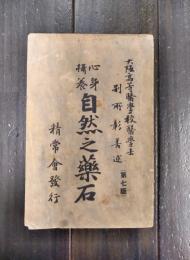 大阪高等醫學校醫學士
別所彰善述
第七版
心身
攝養
自然之藥石
精常會發行